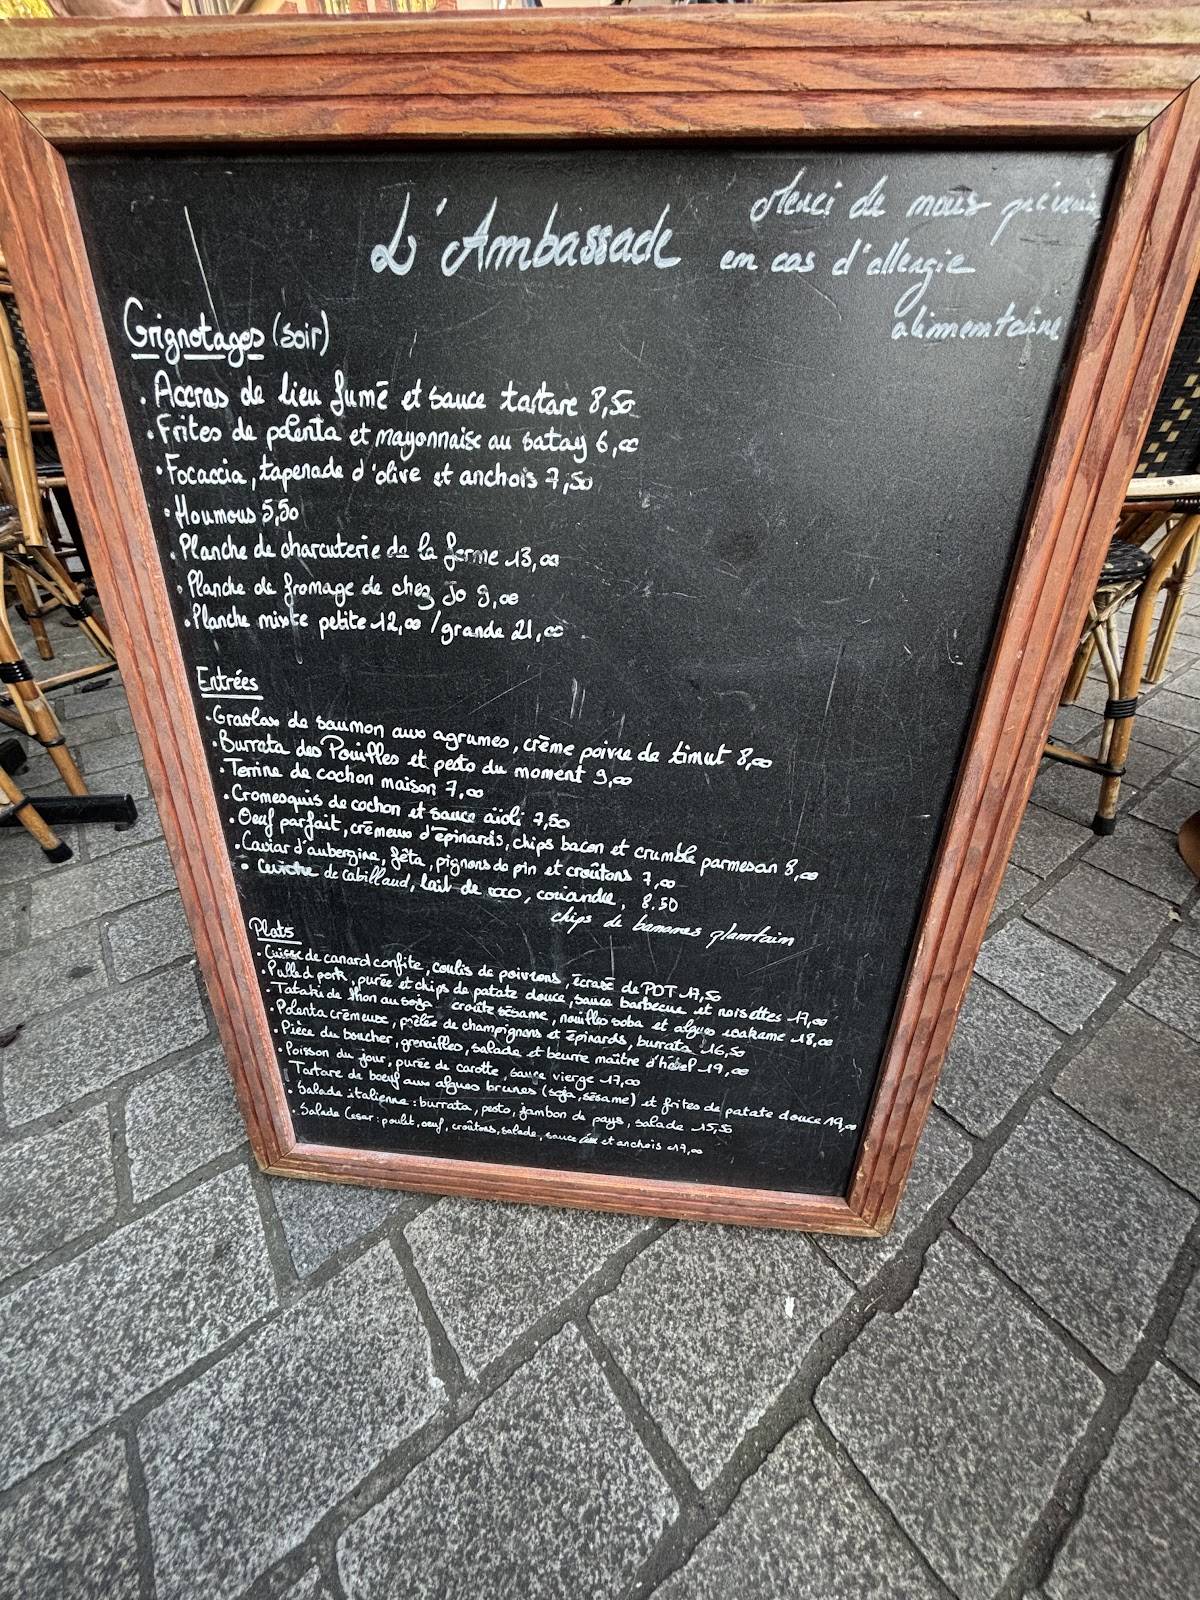 L'Ambassade
Merci de nous prévenir
en cas d'allergie
alimentaire
Grignotages (soir)
. Accras de lieu fumé et sauce tartare 8,50
. Frites de polenta et mayonnaise au satay 6,00
. Focaccia, tapenade d'olive et anchois 7,50
. Houmous 5,50
. Planche de charcuterie de la ferme 13,00
. Planche de fromage de chez Jo 9,00
. Planche mixte petite 12,00 / grande 21,00
Entrées
. Gravlax de saumon aux agrumes, crème poivre de timut 8,00
. Burrata des Pouilles et pesto du moment 9,00
. Terrine de cochon maison 7,00
. Cromesquis de cochon et sauce aïoli 7,50
. Oeuf parfait, crémeux d'épinards, chips bacon et crumble parmesan 8,00
. Caviar d'aubergine, fêta, pignons de pin et croûtons 7,00
. Ceviche de cabillaud, lait de coco, coriandre, 8.50
chips de bananes plantain
Plats
. Cuisse de canard confite, coulis de poivrons, écrasé de PDT 17,50
. Pulled pork, purée et chips de patate douce, sauce barbecue et noisettes 17,00
. Tataki de thon au soja, croûte sésame, nouilles soba et algues wakame 18,00
. Polenta crémeuse, poêlée de champignons et épinards, burrata 16,50
. Pièce du boucher, grenailles, salade et beurre maître d'hôtel 19,00
. Poisson du jour, purée de carotte, sauce vierge 17,00
. Tartare de boeuf aux algues brunes (soja, sésame) et frites de patate douce 19,00
. Salade italienne : burrata, pesto, jambon de pays, salade 15,50
. Salade Cesar : poulet, oeuf, croûtons, salade, sauce et anchois 17,00